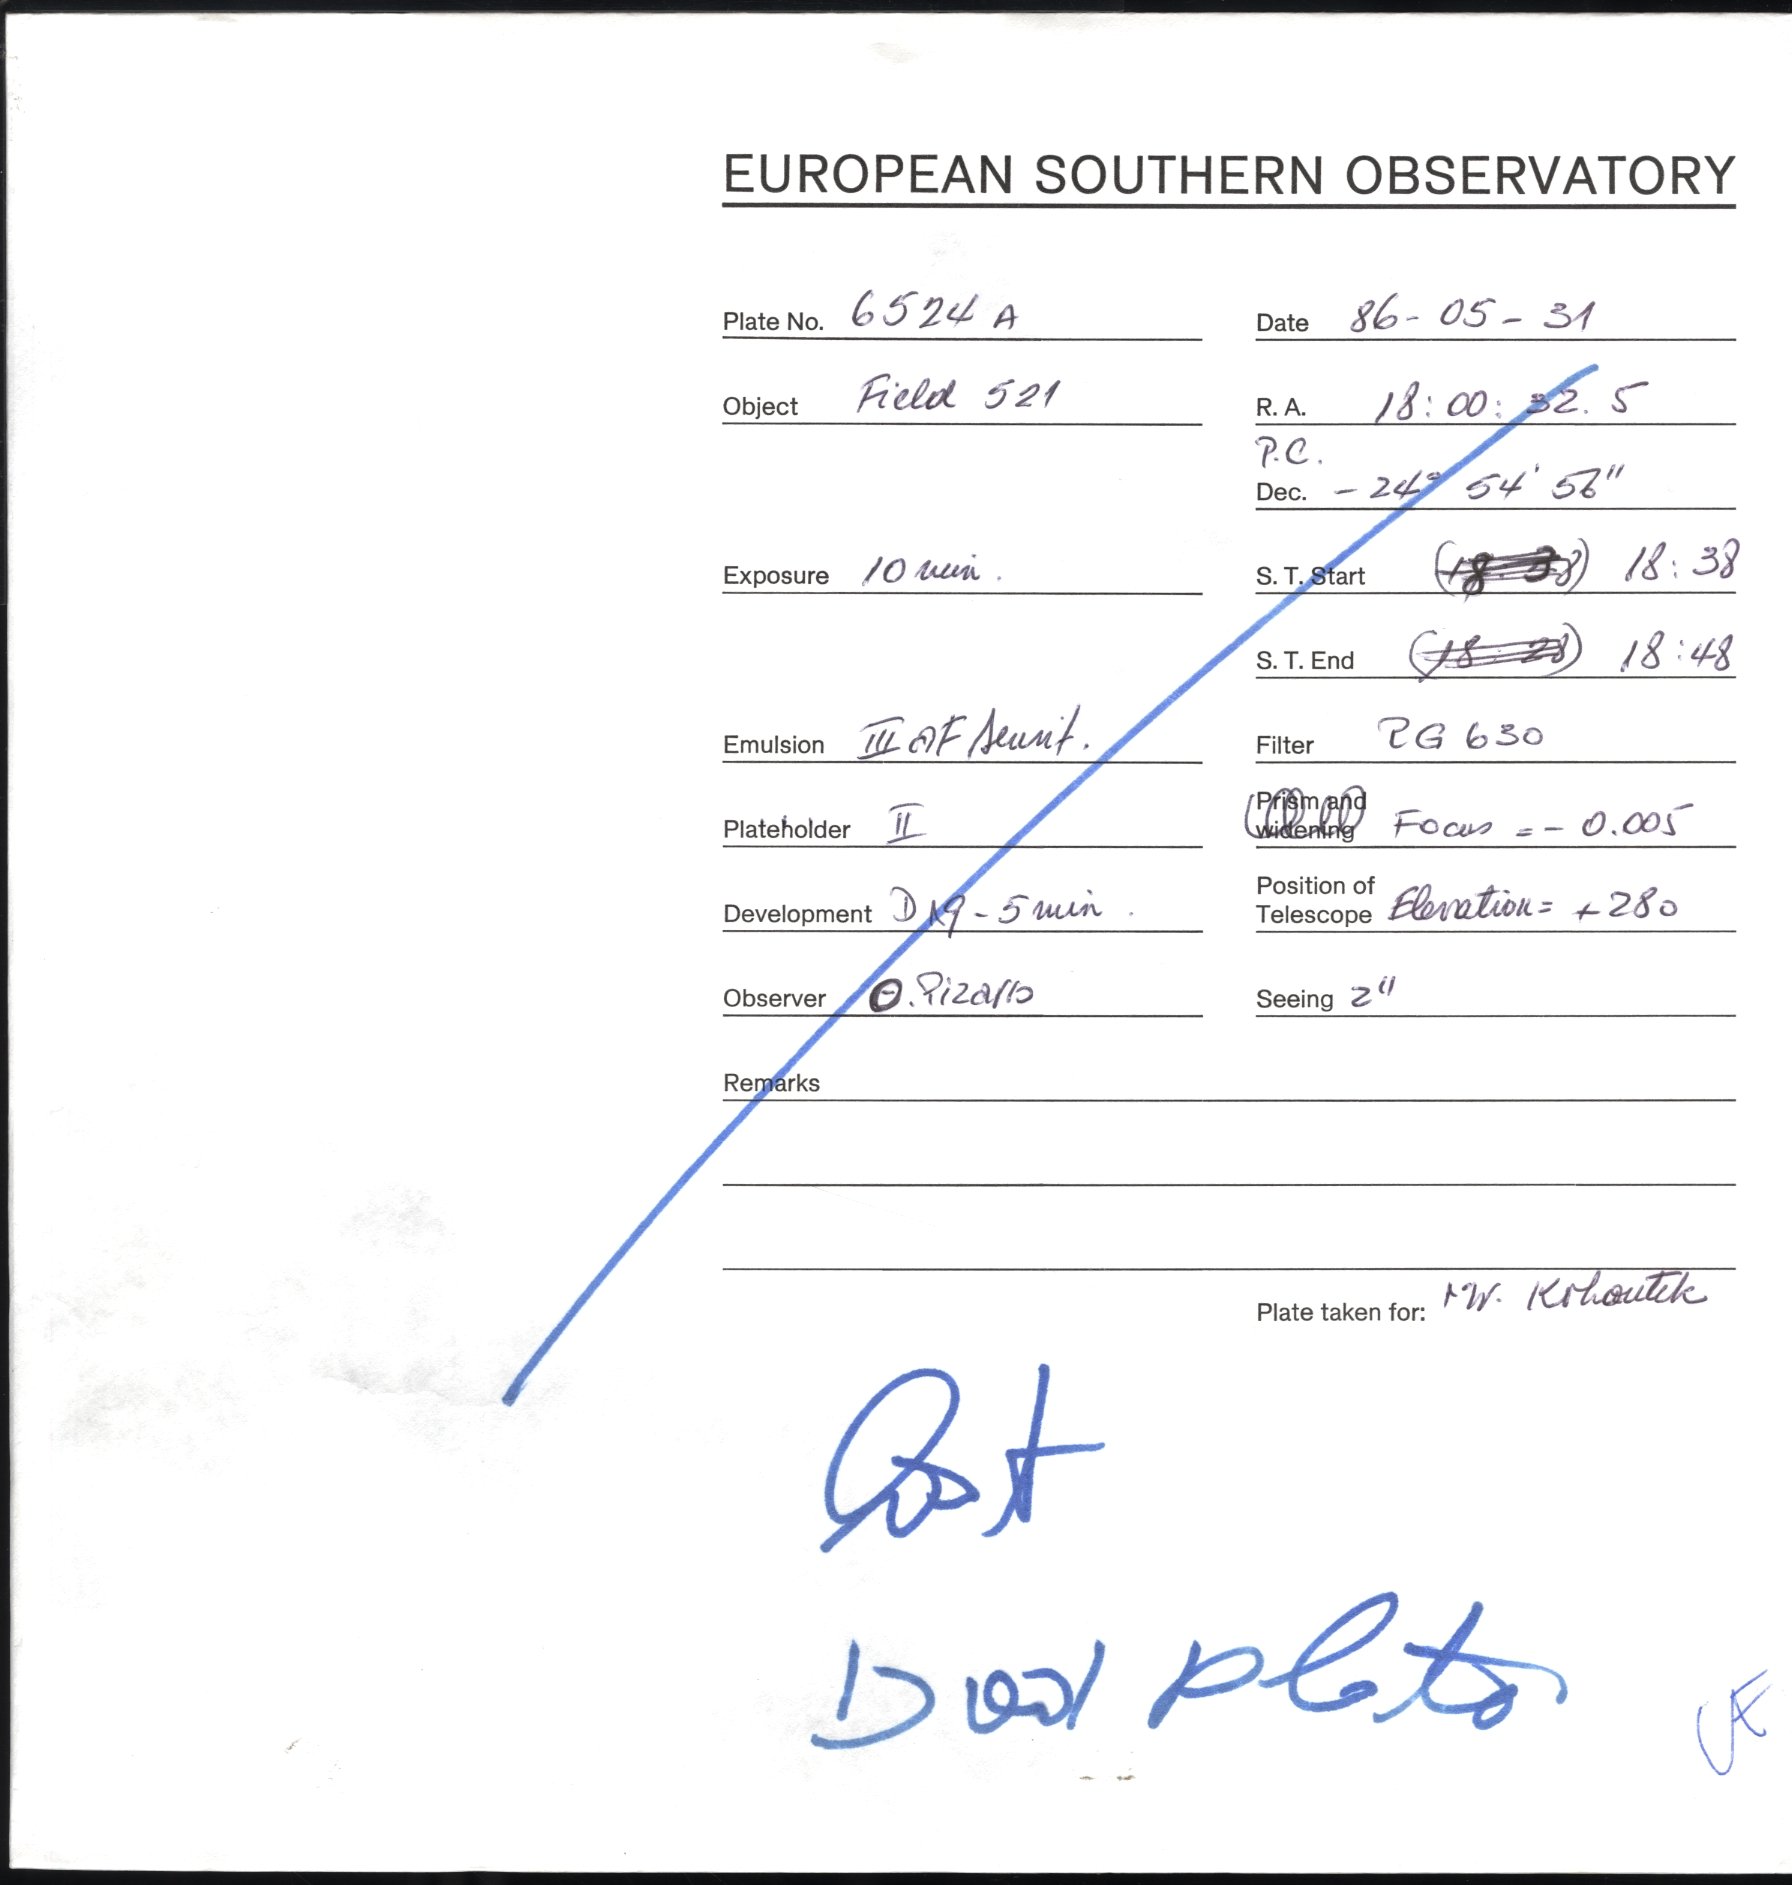 EUROPEAN SOUTHERN OBSERVATORY
Plate No. 6524 A
Date 86-05-31
Object Field 521
R. A. 18:00:32.5
P.C.
Dec. -24° 54' 56"
Exposure 10 min.
S. T. Start (18:38) 18:38
S. T. End (18:28) 18:48
Emulsion III aF sensit.
Filter RG 630
Plateholder II
Prism and
widening Focus = - 0.005
Development D19 - 5 min.
Position of
Telescope Elevation = +280
Observer O. Pizarro
Seeing 2"
Remarks
Plate taken for: Kohoutek